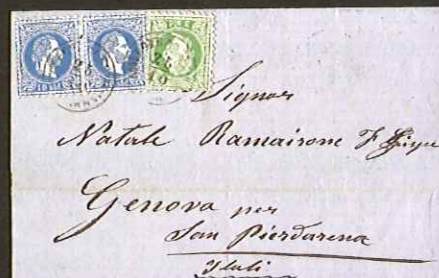 Signor
Natale Ramairone F
Genova per
San Pierdarena
Itali